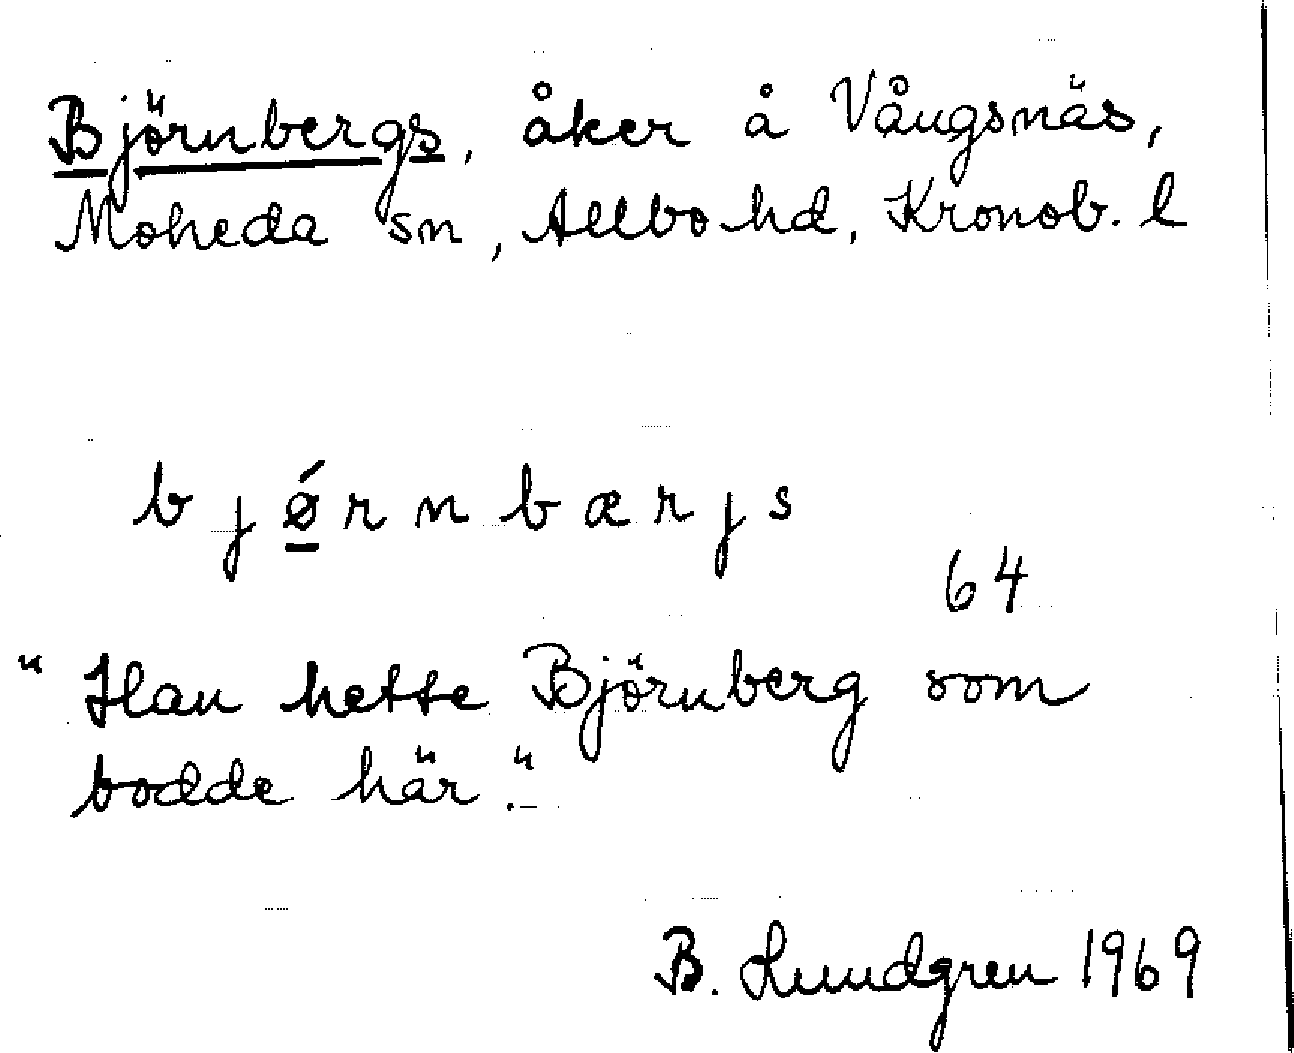 Björnbergs, åker å Vångsnäs,
Moheda sn, Allbo hd, Kronob. l
b j ǿ r n b æ r j s
64
"Han hette Björnberg som
bodde här."
B. Lundgren 1969